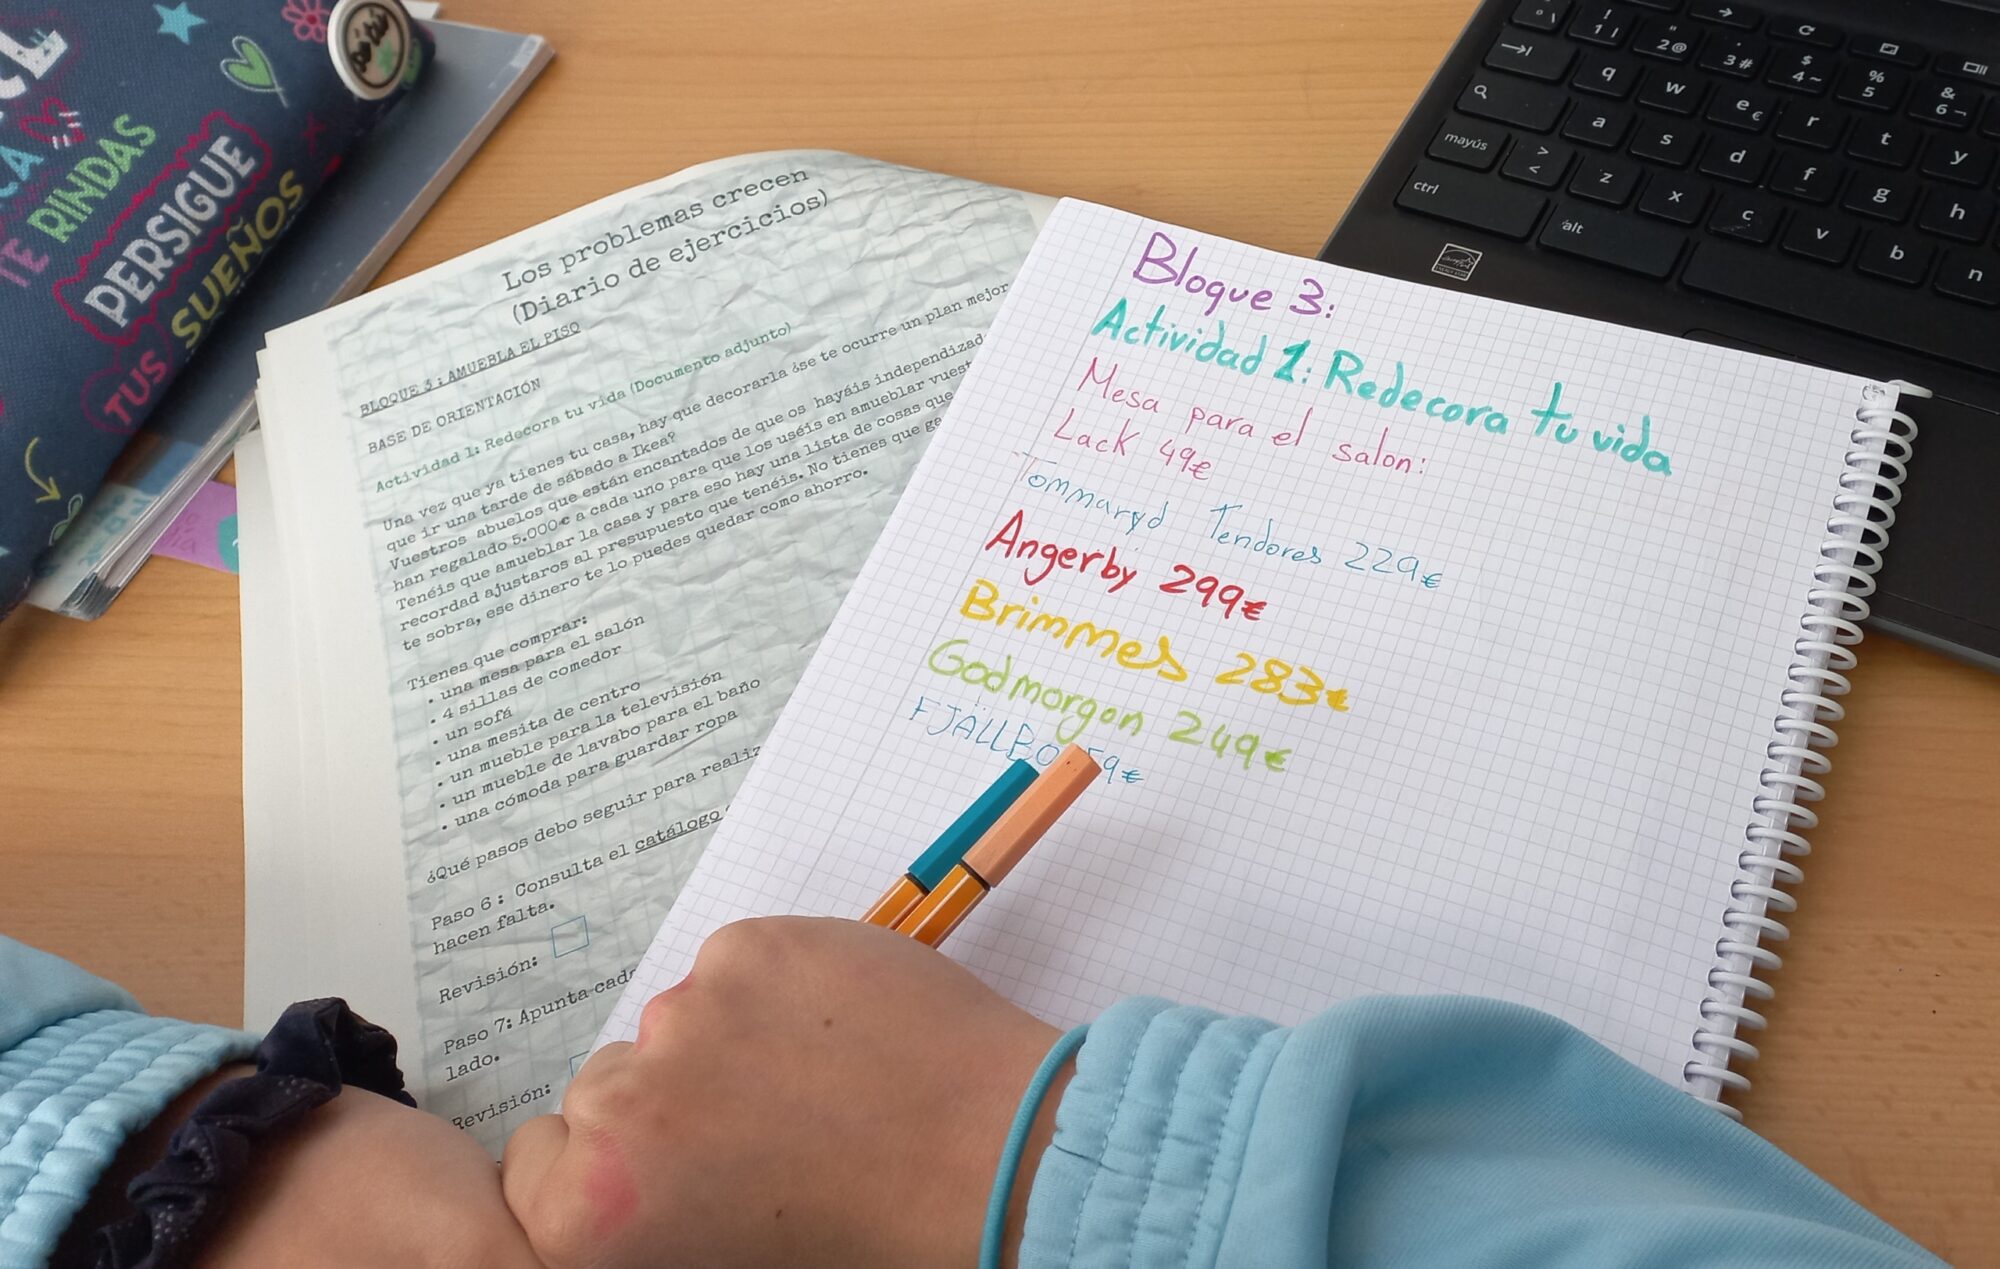 TE RINDAS
PERSIGUE
TUS SUEÑOS
Los problemas crecen
(Diario de ejercicios)
BLOQUE 3: AMUEBLA EL PISO
BASE DE ORIENTACIÓN
Actividad 1: Redecora tu vida (Documento adjunto)
Una vez que ya tienes tu casa, hay que decorarla ¿se te ocurre un plan mejor
que ir una tarde de sábado a Ikea?
Vuestros abuelos que están encantados de que os hayáis
han regalado 5.000€ a cada uno para que los uséis en amueblar
Tenéis que amueblar la casa y para eso hay una lista de cosas que
recordad ajustaros al presupuesto que tenéis. No tienes que
te sobra, ese dinero te lo puedes quedar como ahorro.
Tienes que comprar:
• una mesa para el salón
• 4 sillas de comedor
• un sofá
• una mesita de centro
• un mueble para la televisión
• un mueble de lavabo para el baño
• una cómoda para guardar ropa
¿Qué pasos debo seguir para
Paso 6: Consulta el catálogo
hacen falta.
Revisión:
Paso 7: Apunta
lado.
Revisión:
Bloque 3:
Actividad 1: Redecora tu vida
Mesa para el salon:
Lack 49€
Tommaryd Tendores 229€
Angerby 299€
Brimmes 283€
Godmorgon 249€
mayús
ctrl
alt
q w e € r t
a s d f g h
z x c v b n
y